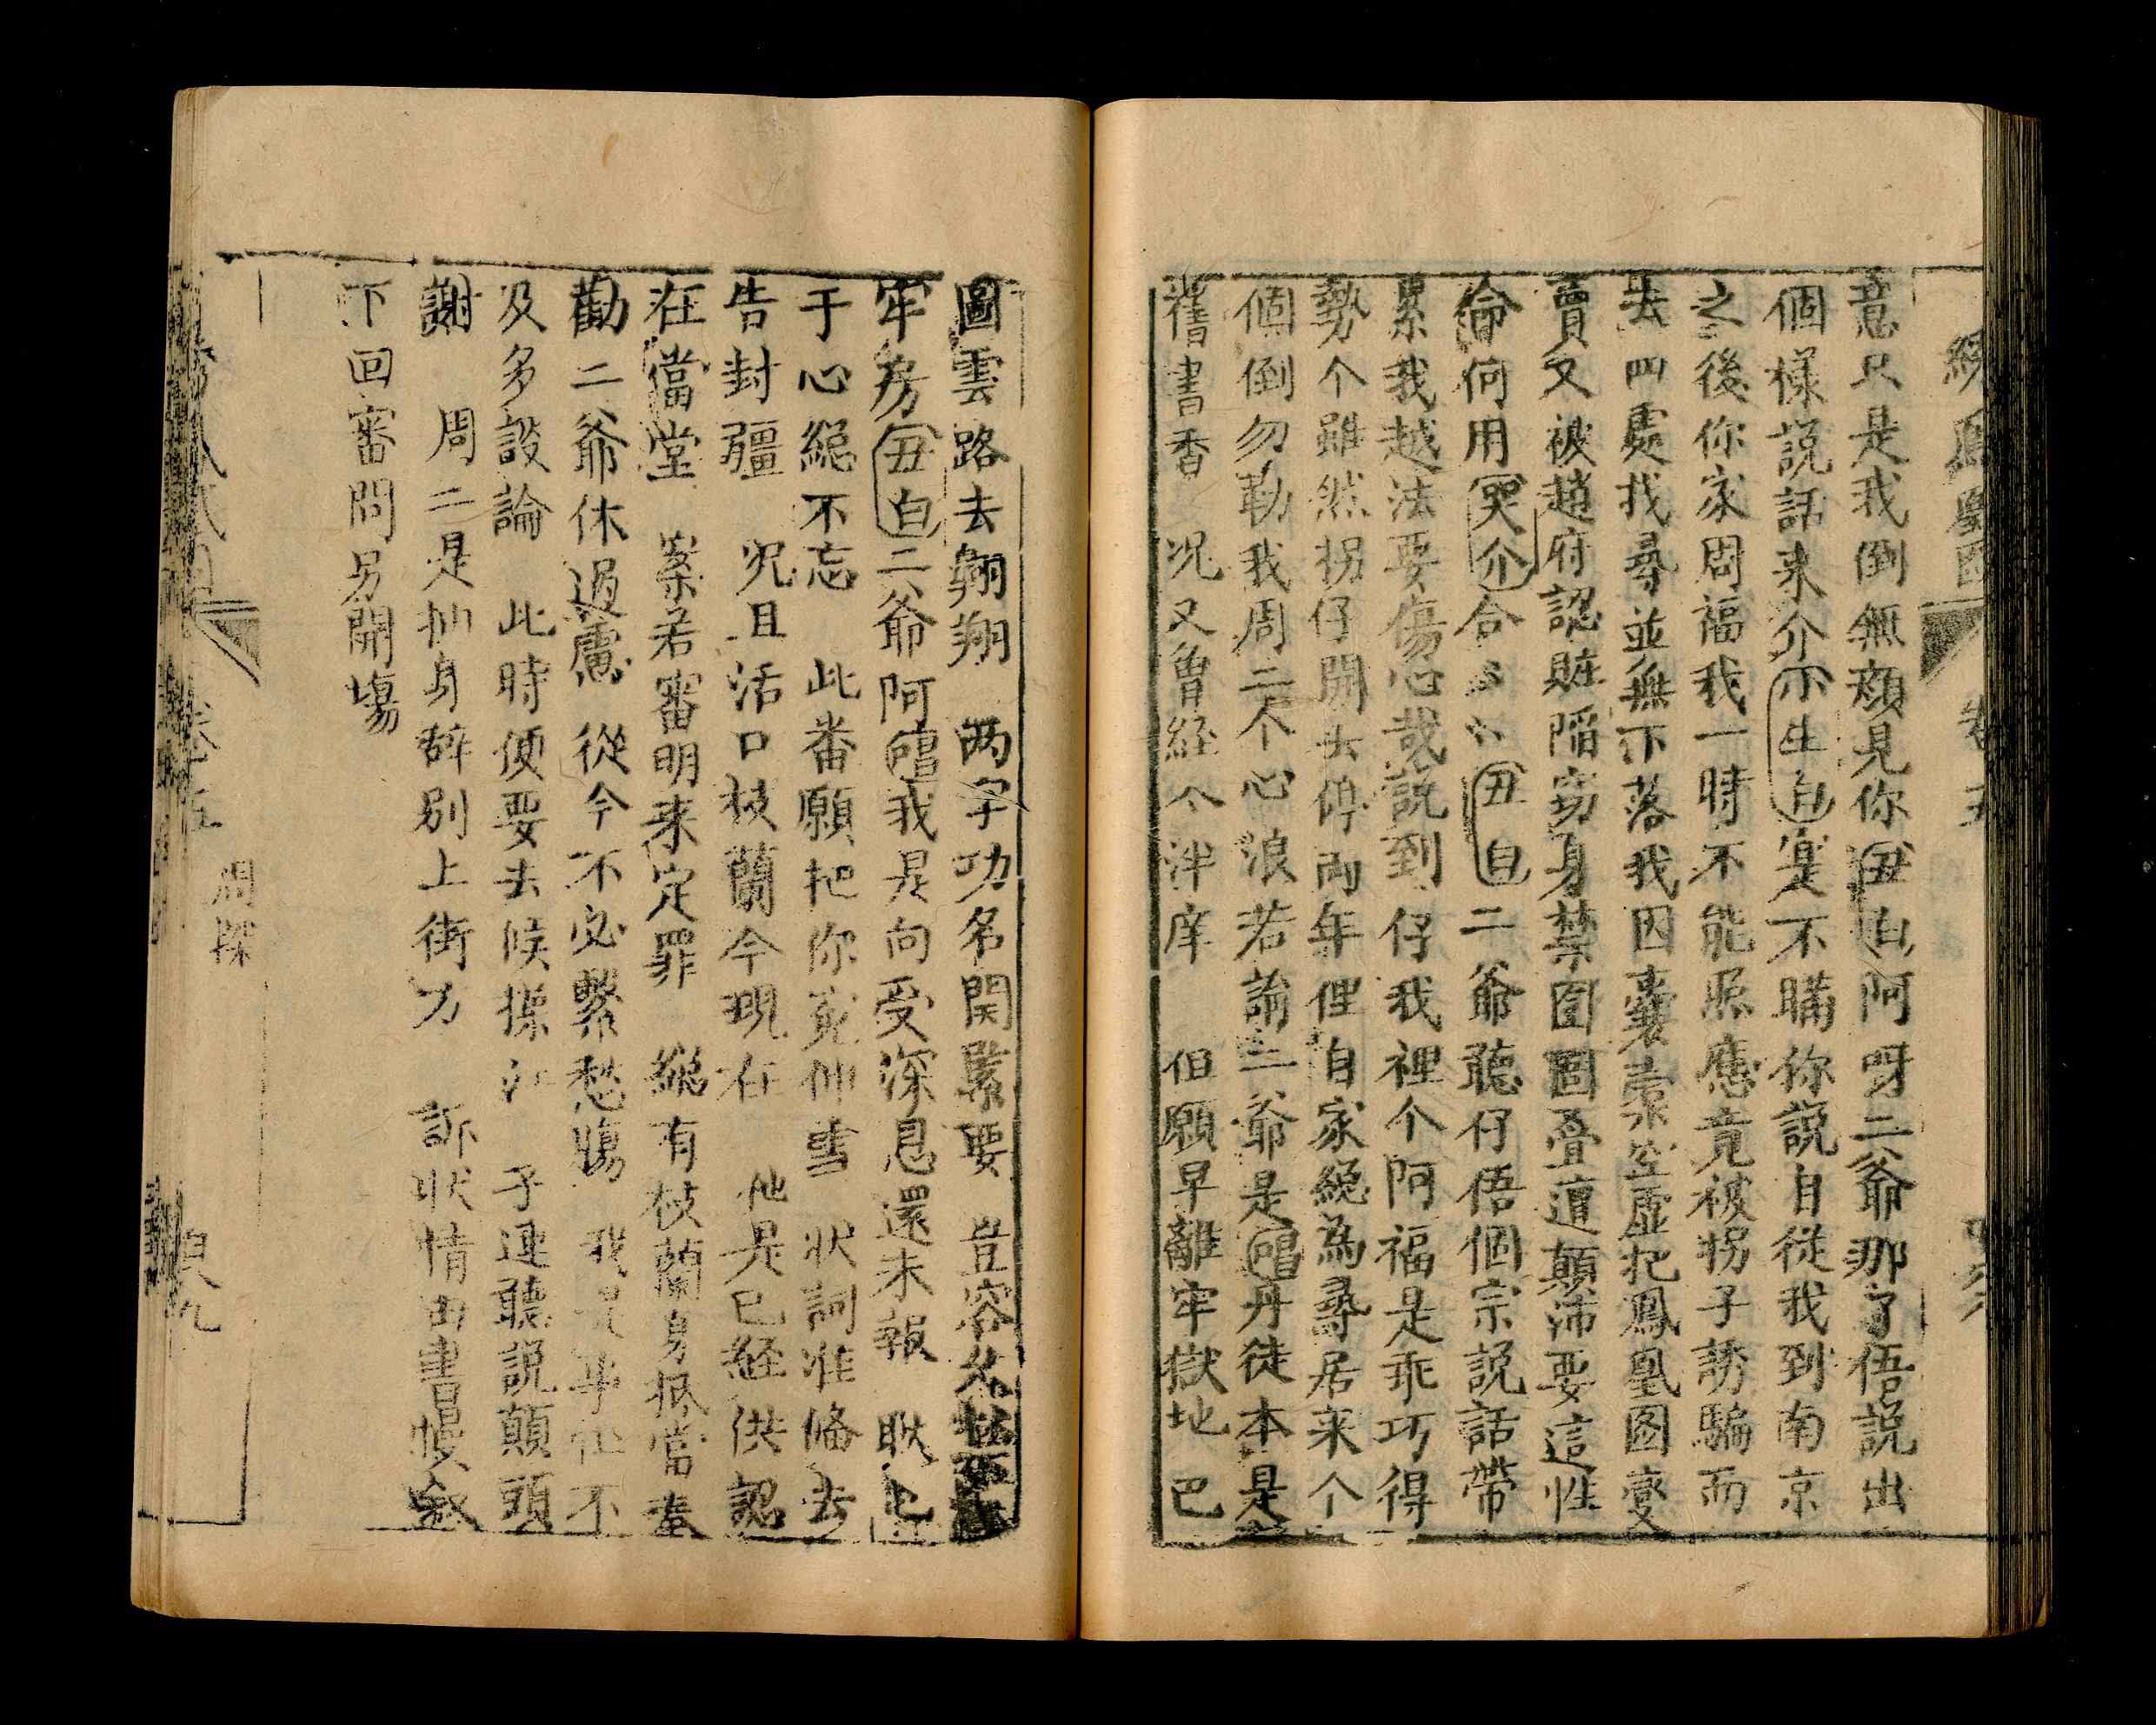 意只是我倒無顏見你丑白阿呀二爺那了俉説出
個樣説話来介小生白寔不瞞你説自從我到南京
之後你家周福我一時不能照應竟被拐子誘騙而
去四處找尋並無下落我因囊橐空虛把鳳凰图變
賣又被趙府認賍陷窃身禁囹圄叠遭顛沛要這性
命何用哭介合丑白二爺聽仔俉個宗説話帶
累我越法要傷心哉説到仔我裡个阿福是乖巧得
勢个雖然拐仔開去停両年俚自家緫為尋居来个
個倒勿勒我周二个心浪若論二爺是唱丹徒本是
舊書香 况又曾経个泮庠 但願早離牢獄地 巴
圖雲路去翱翔 两字功名関緊要 豈容久
牢房丑白二爺阿唱我是向受深恩還未報 耿
于心緫不忘 此番願把你寃伸雪 状詞准俻去
告封疆 况且活口枝蘭今現在 他是已経供認
在當堂 案若審明来定罪 緫有枝蘭身抵當奉
勸二爺休過慮 從今不必繫愁傷 不
及多設論 此時便要去候操江 子連聽説顛頭
謝 周二是抽身辞別上街方 訴状情由書帳
下回審問另開塲
卷五
周探